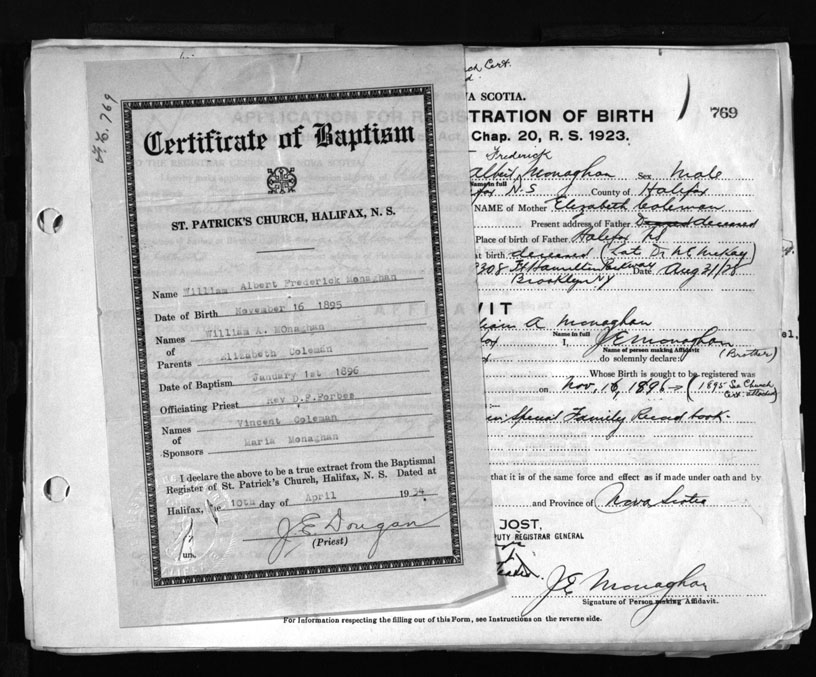 768
Certificate of Baptism
ST. PATRICK'S CHURCH, HALIFAX, N. S.
Name William Albert Frederick Monaghan
Date of Birth November 16 1895
Names William A. MOnaghan
of
Parents Elizabeth Coleman
Date of Baptism January 1st 1896
Officiating Priest Rev D.F.Forbes
Names Vincent Coleman
of
Sponsors Maria Monaghan
I declare the above to be a true extract from the Baptismal
Register of St. Patrick's Church, Halifax, N. S. Dated at
Halifax, the 10th day of April 1934.
J. E. Dougan
(Priest)
Cert.
A SCOTIA.
TRATION OF BIRTH
769
Chap. 20, R. S. 1923.
Frederick
Albert Monaghan Sex Male
Name in full
fax N.S County of Halifax
NAME of Mother Elizabeth Coleman
Present address of Father deceased
Place of birth of Father Halifax NS
at birth deceased (Lat. Dr McKay)
308 Ft Hamilton Parkway Date Aug 31/28
Brooklyn NY
VIT
liam A Monaghan
Name in full
I, J E Monaghan
Name of person making Affidavit
do solemnly declare: (Brother)
Whose Birth is sought to be registered was
on Nov, 16, 1896 (1895 See Church
Cert. attached)
in Special Family Record book
that it is of the same force and effect as if made under oath and by
and Province of Nova Scotia
JOST,
PUTY REGISTRAR GENERAL
J E Monaghan
Signature of Person making Affidavit.
For Information respecting the filling out of this Form, see Instructions on the reverse side.